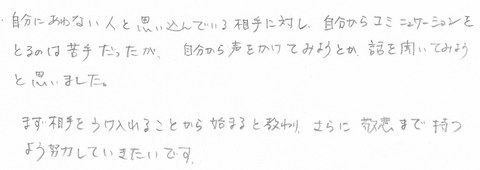 ・自分にあわない人と思い込んでいる相手に対し、自分からコミュニケーションを
とるのは苦手だったが、自分から声をかけてみようとか、話を聞いてみよう
と思いました。
まず相手をうけ入れることから始まると教わり、さらに敬意まで持つ
よう努力していきたいです。